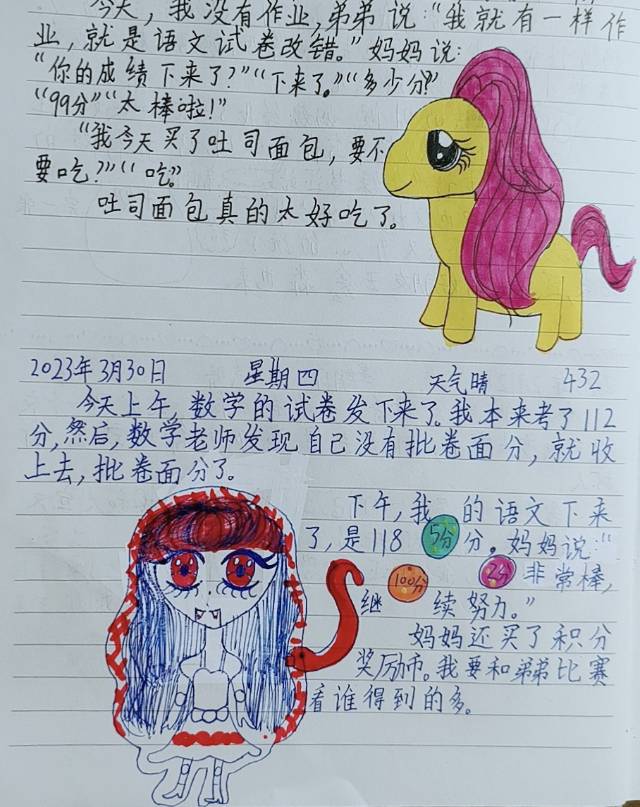 今天，我没有作业，弟弟说："我就有一样作
业，就是语文试卷改错。"妈妈说：
"你的成绩下来了？""下来了。""多少分？"
"99分""太棒啦！"
"我今天买了吐司面包，要不
要吃？""吃。"
吐司面包真的太好吃了。
2023年3月30日 星期四 天气晴 432
今天上午，数学的试卷发下来了。我本来考了112
分，然后，数学老师发现自己没有批卷面分，就收
上去，批卷面分了。
下午，我的语文下来
了，是118 5分 分。妈妈说："
100分 24 非常棒，
继续努力。"
妈妈还买了积分
奖励币。我要和弟弟比赛
看谁得到的多。